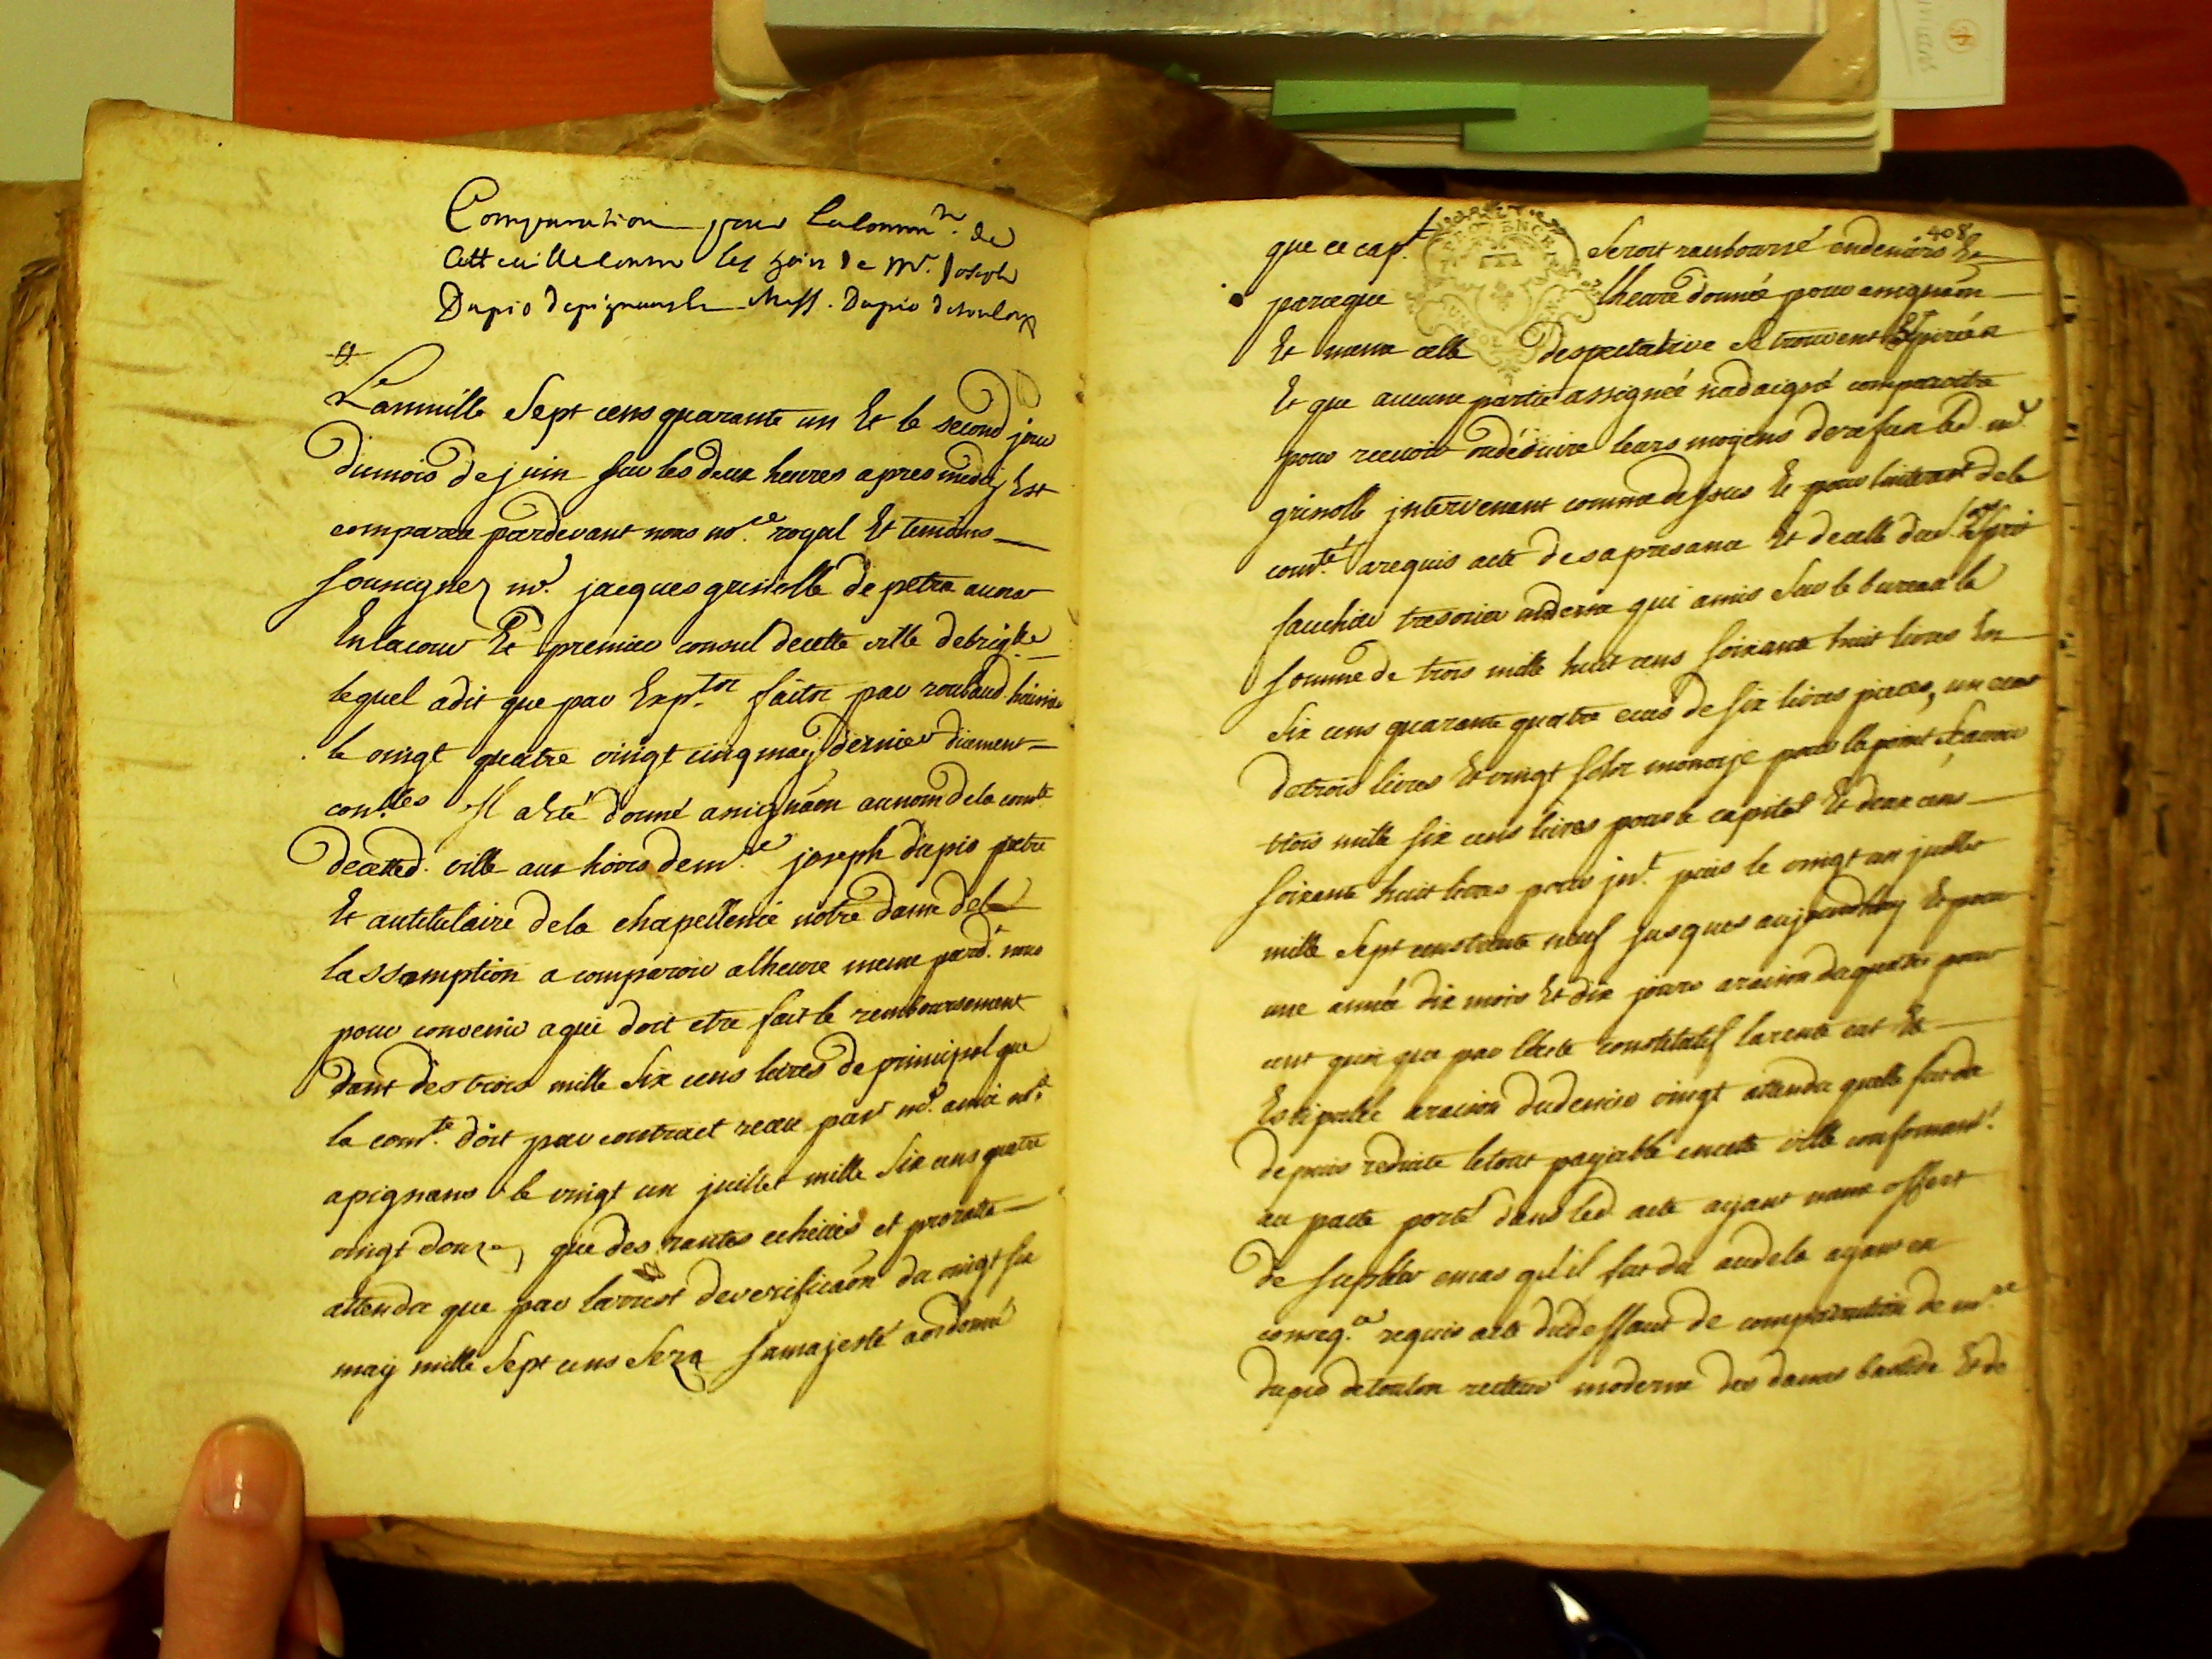 Comparution pour la comm.té de
cette ville contre les hoirs de mr. Joseph
Dupio de pignans & Messr. Dupio de toulon
L'an mille Sept cens quarante un Et le second jour
du mois de juin sur les deux heures apres midy Est
comparu pardevant nous no.re royal Et temoins
sousignez mr. jacques grisolle de petra avocat
En la cour Et premier consul de cette ville de brig.lle
lequel a dit que par Exp.ons faites par roubaud huissier
le vingt quatre vingt cinq may dernier duement
con.lles Il a Eté donné assignãon au nom de la com.té
de cetted. ville aux hoirs de m.re joseph dupio pretre
Et antitulaire de la chapellenie notre dame de
lassomption a comparoir a lheure meme pard.t nous
pour convenir a qui doit etre fait le remboursement
tant des trois mille Six cens livres de principal que
la com.té doit par contract receu par mr. amic no.re
a pignans le vingt un juillet mille Six cens quatre
vingt douze que des rantes echeues et proratte
attendu que par larrest de verificaõn du vingt six
may mille Sept cens Seize sa majesté a ordonné
408
que ce cap.l Seroit rambourcé en deniers Et
parceque lheure donnée pour assignaon
Et meme celle despectative se trouvent Expirées
Et que aucune partie assignée na daigné comparoitre
pour recevoir ou déduire leurs moyens de refus led. mr.
grisolle jntervenant comme dessus Et pour linterest de la
com.té a requis acte de sa presance Et de celle du sr.
fauchier tresorier moderne qui a mis Sur le bureau la
somme de trois mille huit cens soixante huit livres En
Six cens quarante quatre ecus de six livres pieces, un ecus
de trois livres Et vingt sols monoye pour lapoint Scavoir
trois mille six cens livres pour le capital Et deux cens
soixante huit livres pour jnt.t puis le vingt un juillet
mille Sept cens trente neuf jusques aujourdhuy Et pour
une année dix mois Et dix jours a raison de quatre pour
cent quoi que par lacte constitutif la rente eut Eté
Estipulée a raison du denier vingt attendu quelle fut du
depuis reduite le tout payable en cette ville conformem.t
au pacte porté dans led. acte ayant meme offert
de suppléer en cas qu'il fut du audela ayant en
conseq.ce requis acte du deffaut de comparution de m.re
dupio de toulon recteur moderne des dames bastide Et de